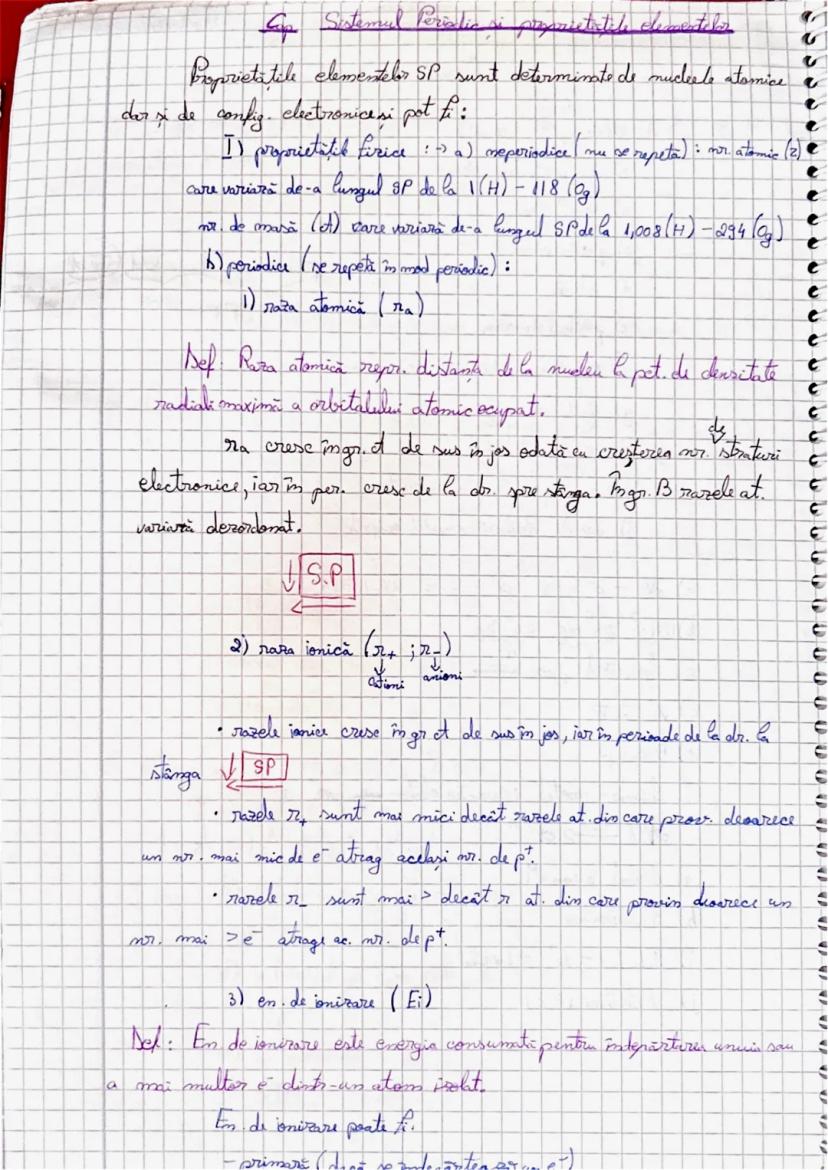 Cap Sistemul Periodic și proprietățile elementelor
Proprietățile elementelor SP sunt determinate de nucleele atomice
dar și de config. electronice și pot fi:
I) proprietăți fizice : → a) neperiodice (nu se repetă) : nr. atomic (z)
care variază de-a lungul SP de la 1(H) – 118 (Og)
nr. de masă (A) care variază de-a lungul SP de la 1,008 (H) – 294 (Og)
b) periodice (se repetă în mod periodic) :
1) raza atomică (ra)
Def: Raza atomică repr. distanța de la nucleu la pct. de densitate
radială maximă a orbitalului atomic ocupat.
ra cresc în gr. A de sus în jos odată cu creșterea nr. de straturi
electronice, iar în per. cresc de la dr. spre stânga. În gr. B razele at.
variază dezordonat.
↓ S.P
←
2) raza ionică (r+ ; r-)
↓ ↓
cationi anioni
• razele ionice cresc în gr A de sus în jos, iar în perioade de la dr. la
stânga ↓ SP
←
• razele r+ sunt mai mici decât razele at. din care prov. deoarece
un nr. mai mic de e⁻ atrag același nr. de p⁺.
• razele r- sunt mai > decât r at. din care provin deoarece un
nr. mai > e⁻ atrage ac. nr. de p⁺.
3) en. de ionizare (Ei)
Def: En de ionizare este energia consumată pentru îndepărtarea unuia sau
a mai multor e⁻ dintr-un atom izolat.
En. de ionizare poate fi:
– primară (dacă se îndepărtează un e⁻)